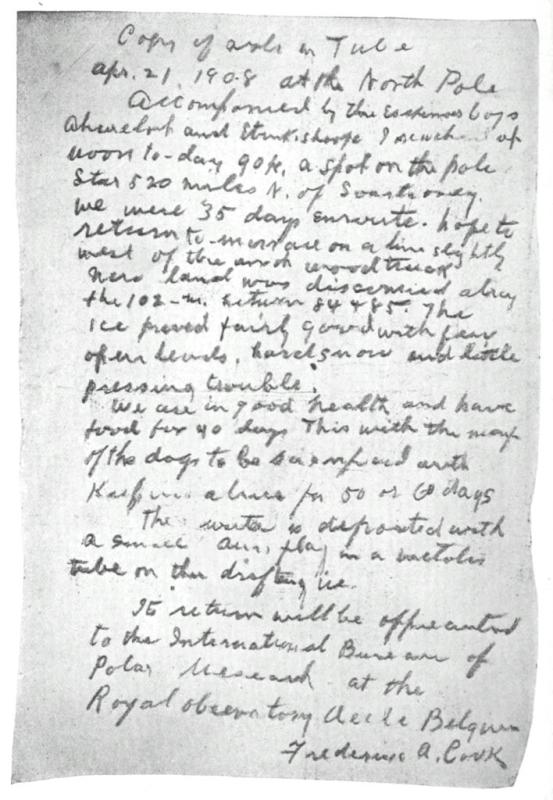 Copy of note in Tube
Apr. 21, 1908 at the North Pole
Accompanied by the Eskimo boys
Ahwelah and Etukishook I reached at
noon to-day 90 N, a spot on the polar
star 520 miles N. of Svartevoeg.
We were 35 days enroute. hope to
return to-morrow on a line slightly
west of the north track
New land was discovered along
the 102 - m. between 84 + 85. The
ice proved fairly good with few
open leads, hard snow and little
pressing trouble.
We are in good health and have
food for 40 days This with the meat
of the dogs to be sacrificed will
keep us alive for 50 or 60 days
The note is deposited with
a small Am. flag in a metallic
tube on the drifting ice.
Its return will be appreciated
to the International Bureau of
Polar Research at the
Royal observatory Uccle Belgium
Frederick A. Cook